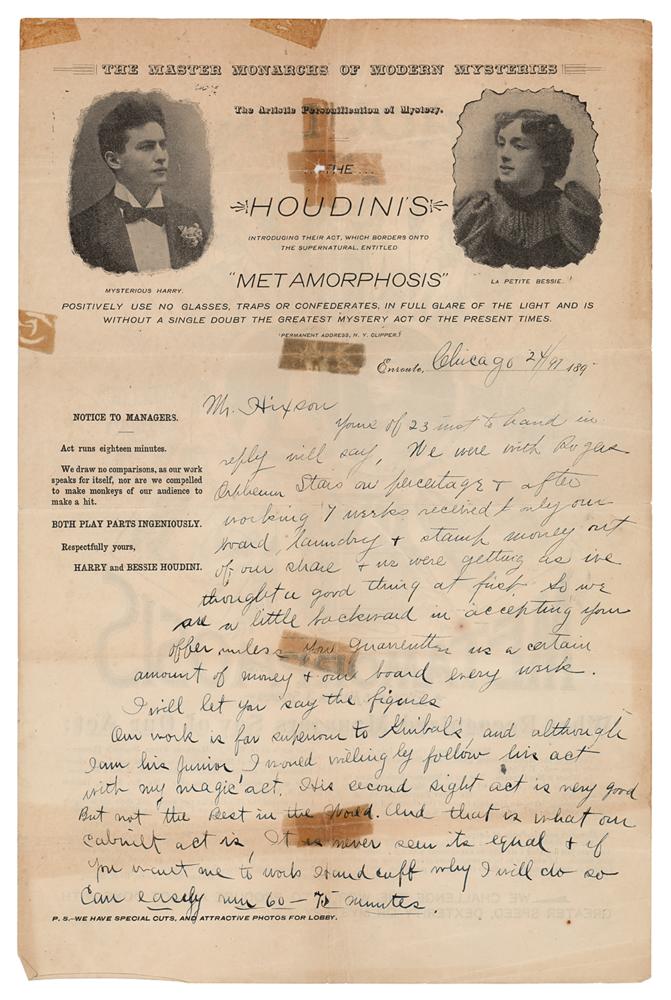 THE MASTER MONARCHS OF MODERN MYSTERIES
The Artistic Personification of Mystery.
...THE...
HOUDINI'S
INTRODUCING THEIR ACT, WHICH BORDERS ONTO
THE SUPERNATURAL, ENTITLED
"METAMORPHOSIS"
MYSTERIOUS HARRY.
LA PETITE BESSIE.
POSITIVELY USE NO GLASSES, TRAPS OR CONFEDERATES, IN FULL GLARE OF THE LIGHT AND IS
WITHOUT A SINGLE DOUBT THE GREATEST MYSTERY ACT OF THE PRESENT TIMES.
(PERMANENT ADDRESS, N. Y. CLIPPER.)
Enroute, Chicago 24/97 189
NOTICE TO MANAGERS.
Act runs eighteen minutes.
We draw no comparisons, as our work
speaks for itself, nor are we compelled
to make monkeys of our audience to
make a hit.
BOTH PLAY PARTS INGENIOUSLY.
Respectfully yours,
HARRY and BESSIE HOUDINI.
Mr. Hixson
Yours of 23 inst to hand in
reply will say, We were with
Orpheum Stars on percetage + after
working 7 weeks received only our
board, laundry + stamp money out
of our share + we were getting as we
thought a good thing at first. So we
are a little backward in accepting your
offer unless you us a certain
amount of money + our board every week.
I will let you say the figures
Our work is far superior to and although
I am his Junior I would willingly follow his act
with my magic act. His second sight act is very good
But not "the Best in the World. And that is what our
cabinet act is, It is never seen its equal + if
you want me to work Handcuff why I will do so
Can easely run 60 – 75 minutes.
P. S.—WE HAVE SPECIAL CUTS, AND ATTRACTIVE PHOTOS FOR LOBBY.